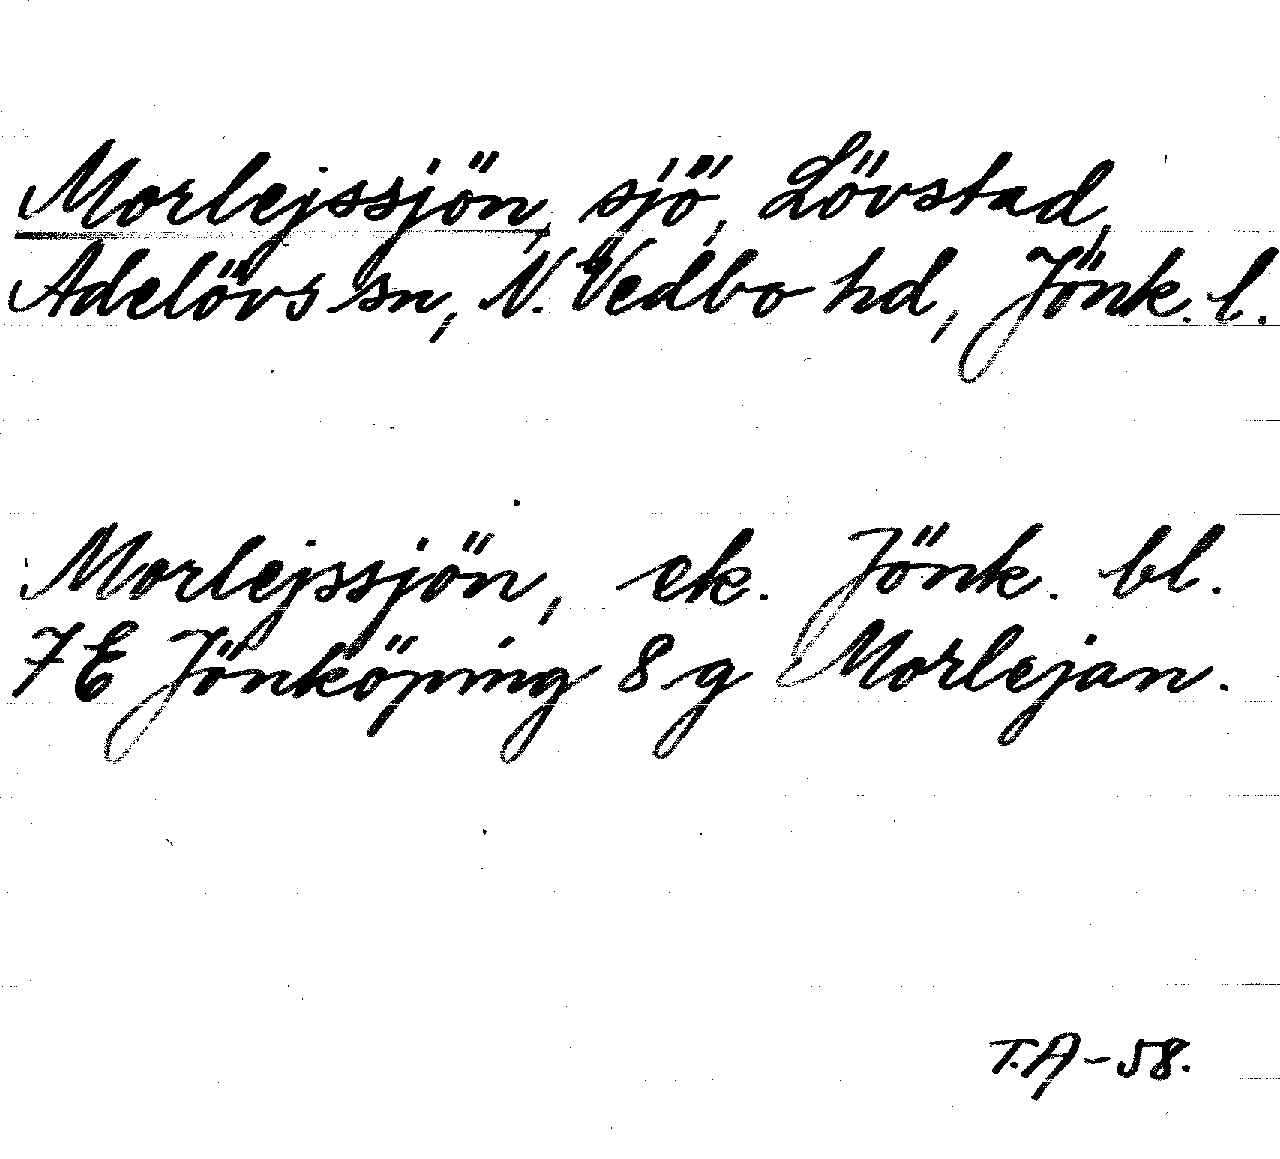 Morlejssjön, sjö, Lövstad,
Adelövs sn, N. Vedbo hd, Jönk. l.
Morlejssjön, ek. Jönk. bl.
7E Jönköping 8 g Morlejan.
T.A-58.